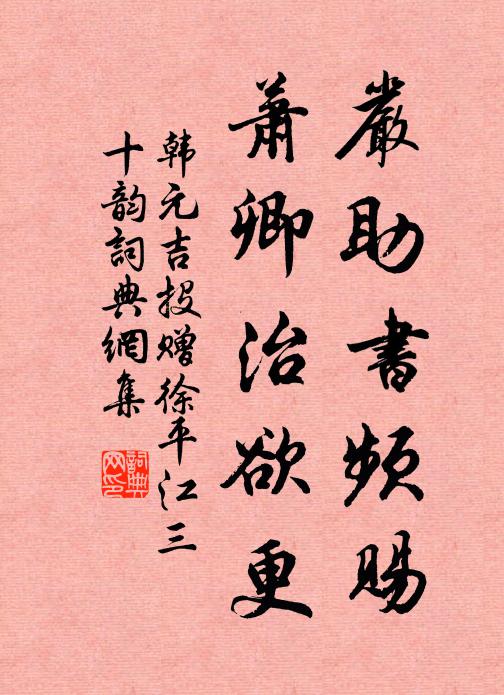 嚴助書頻賜
蕭卿治欲更
韩元吉投赠徐平江三
十韵詞典網集
詞典
网印